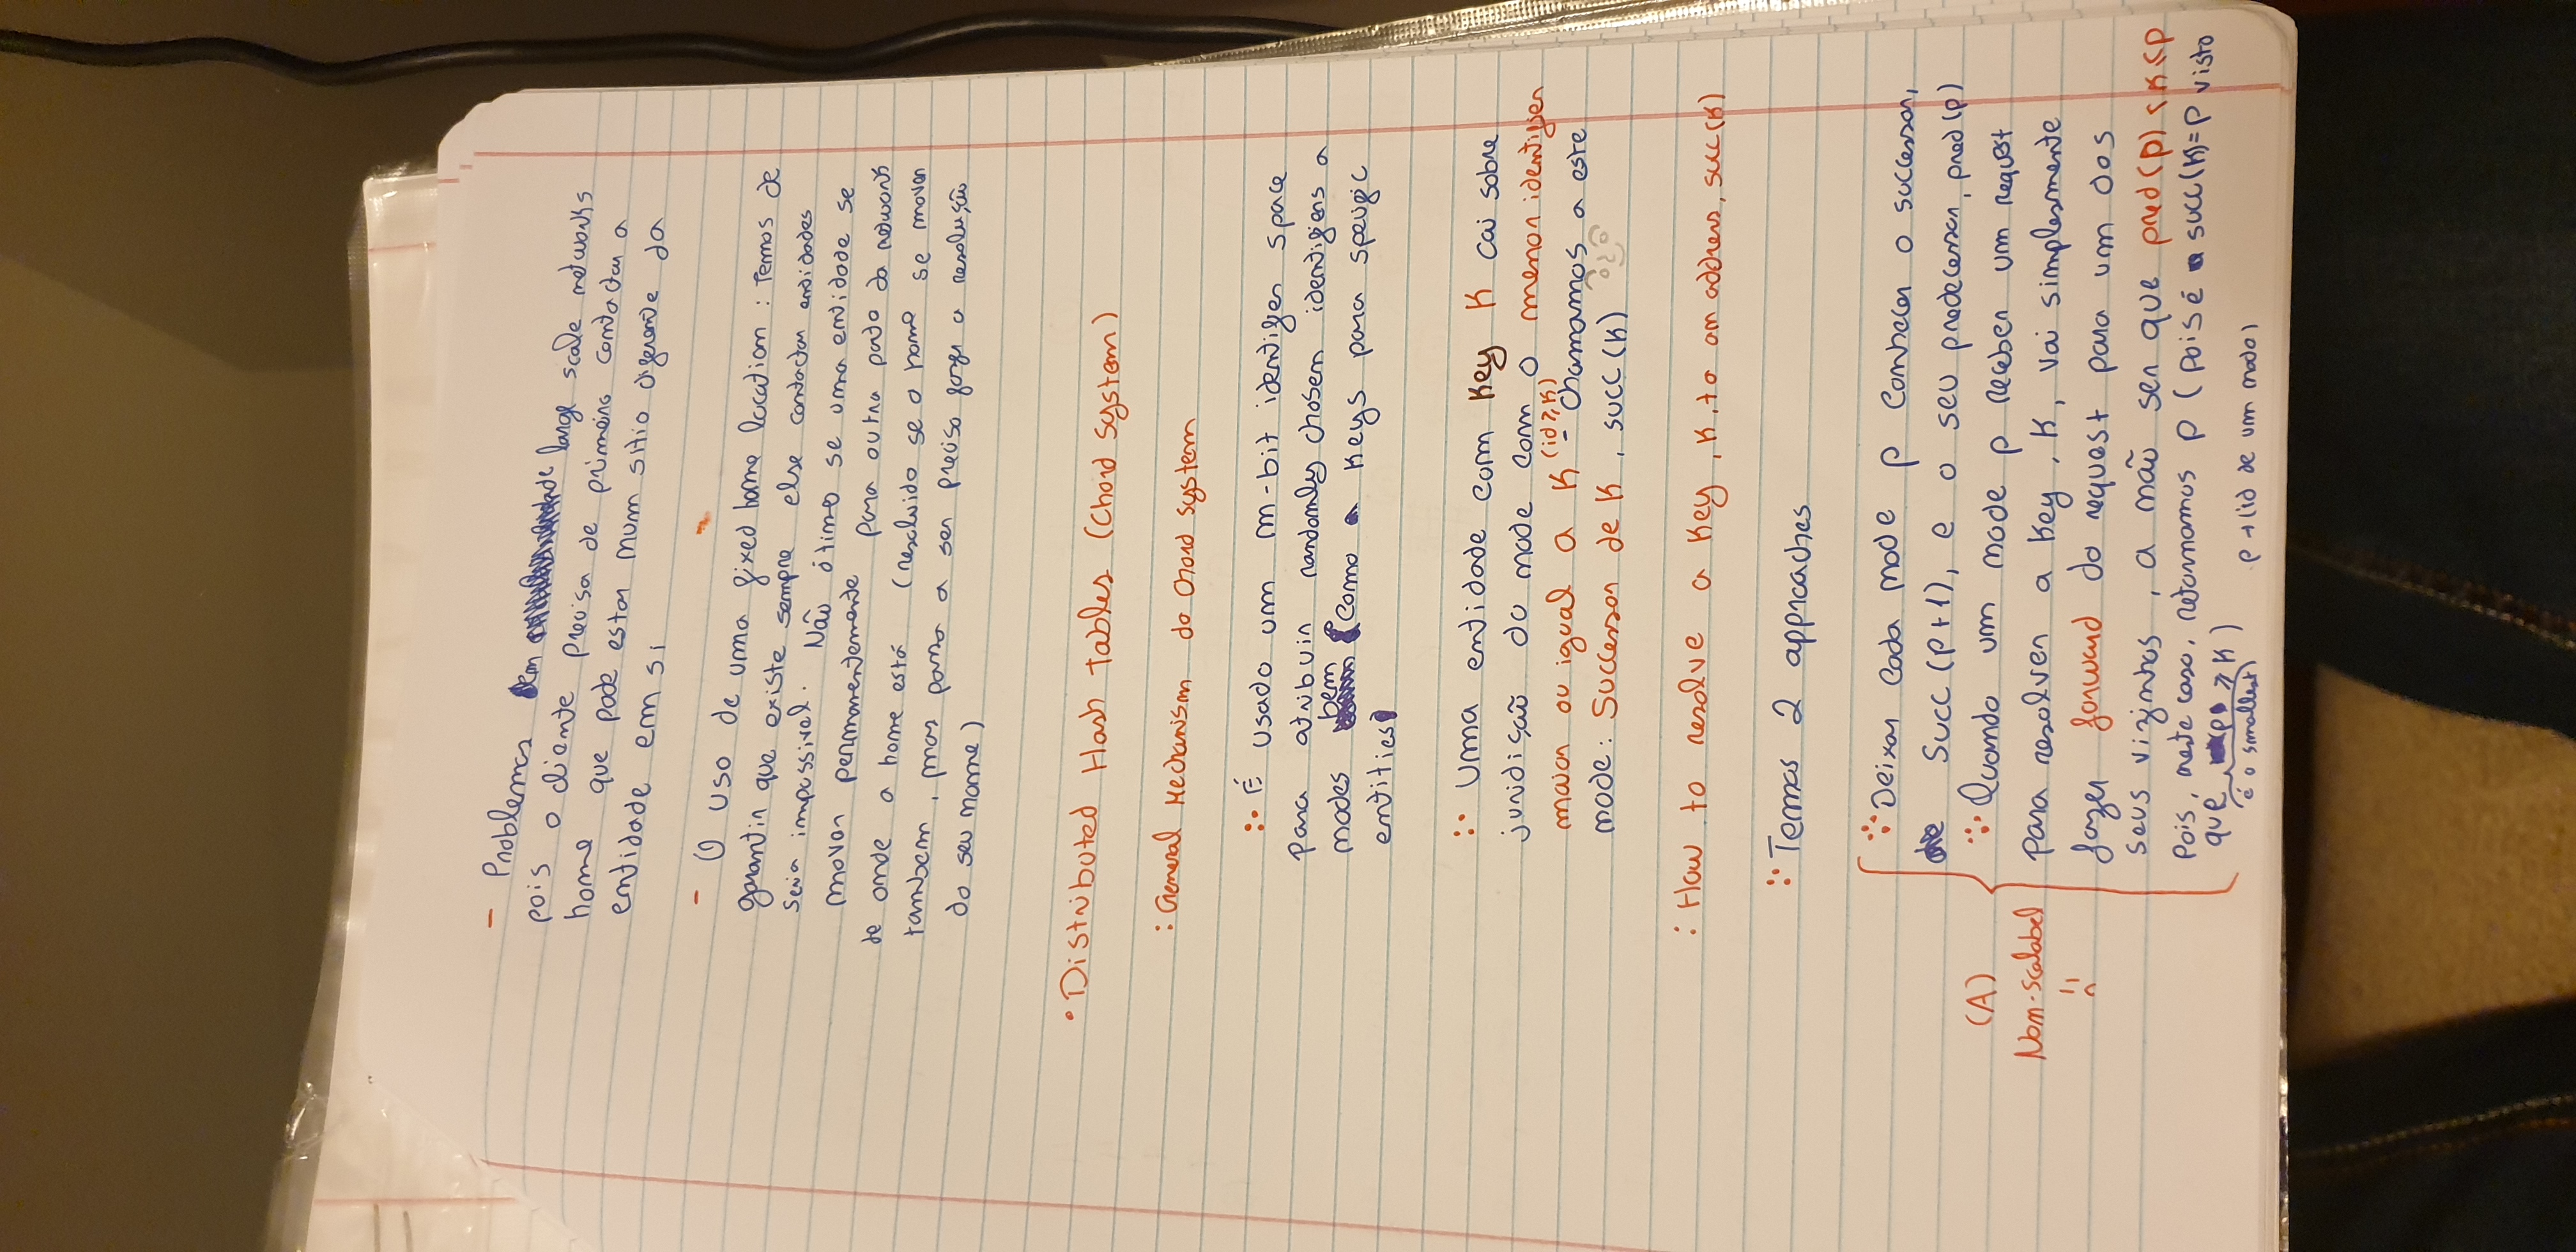 - Problemas em de large scale networks
pois o cliente precisa de primeiro contactar a
home que pode estar num sitio diferente da
entidade em si
- O uso de uma fixed home location : Temos de
garantir que existe sempre else contactar entidades
seria impossivel. Não ótimo se uma entidade se
mover permanentemente para outra parte da network
de onde a home está (resolvido se o home se mover
tambem, mas passa a ser preciso fazer a resolução
do seu nome)
• Distributed Hash Tables (Chord System)
: General Mechanism do Chord System
:· É usado um m-bit identifier space
para atribuir randomly chosen identifiers a
nodes bem como a Keys para specific
entities
:· Uma entidade com Key K cai sobre
juridição do node com o menor identifier
maior ou igual a K (id ≥ K) - chamamos a este
node: Successor de K, succ(K)
: How to resolve a Key, K, to an address, succ(K)
:: Temos 2 approaches
Deixar cada node p conhecer o successor,
succ(p+1), e o seu predecessor, pred(p)
Quando um node p receber um request
(A)
para resolver a Key, K, vai simplesmente
Non-scalabel
fazer forward do request para um dos
seus vizinhos, a não ser que pred(p) < K ≤ p
pois, neste caso, retornamos p (pois é succ(K)=p visto
que p ≥ K)
é o smallest
p → (id de um nodo)